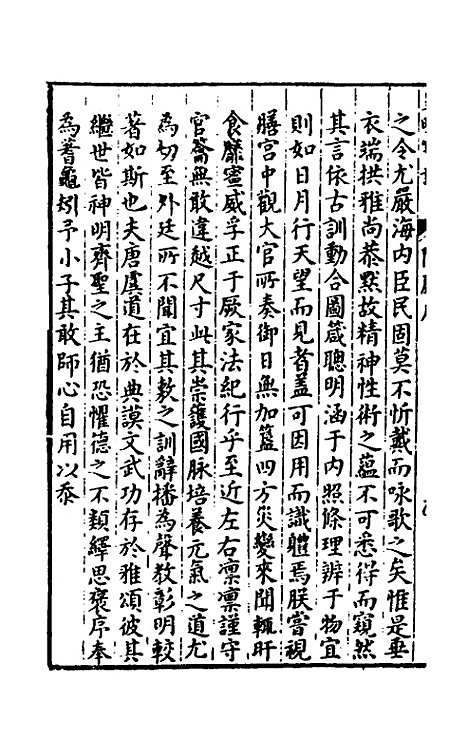 之令尤嚴海内臣民固莫不忻戴而咏歌之矣惟是垂
衣端拱雅尚恭默故精神性術之蘊不可悉得而窺然
其言依古訓動合圖箴聰明涵于内照條理辨于物宜
則如日月行天望而見者蓋可因用而識軆焉朕嘗視
膳宫中觀大官所奏御日無加簋四方災變來聞輒旰
食靡寍威孚正于厥家法紀行乎至近左右凛凛謹守
官䘵無敢違越尺寸此其崇護國脉培養元氣之道尤
為切至外廷所不聞宜其敕之訓辭播為聲教彰明較
著如斯也夫唐虞道在於典謨文武功存於雅頌彼其
繼世皆神明齊聖之主猶恐懼德之不類繹思褒序奉
為蓍龜矧予小子其敢師心自用以忝